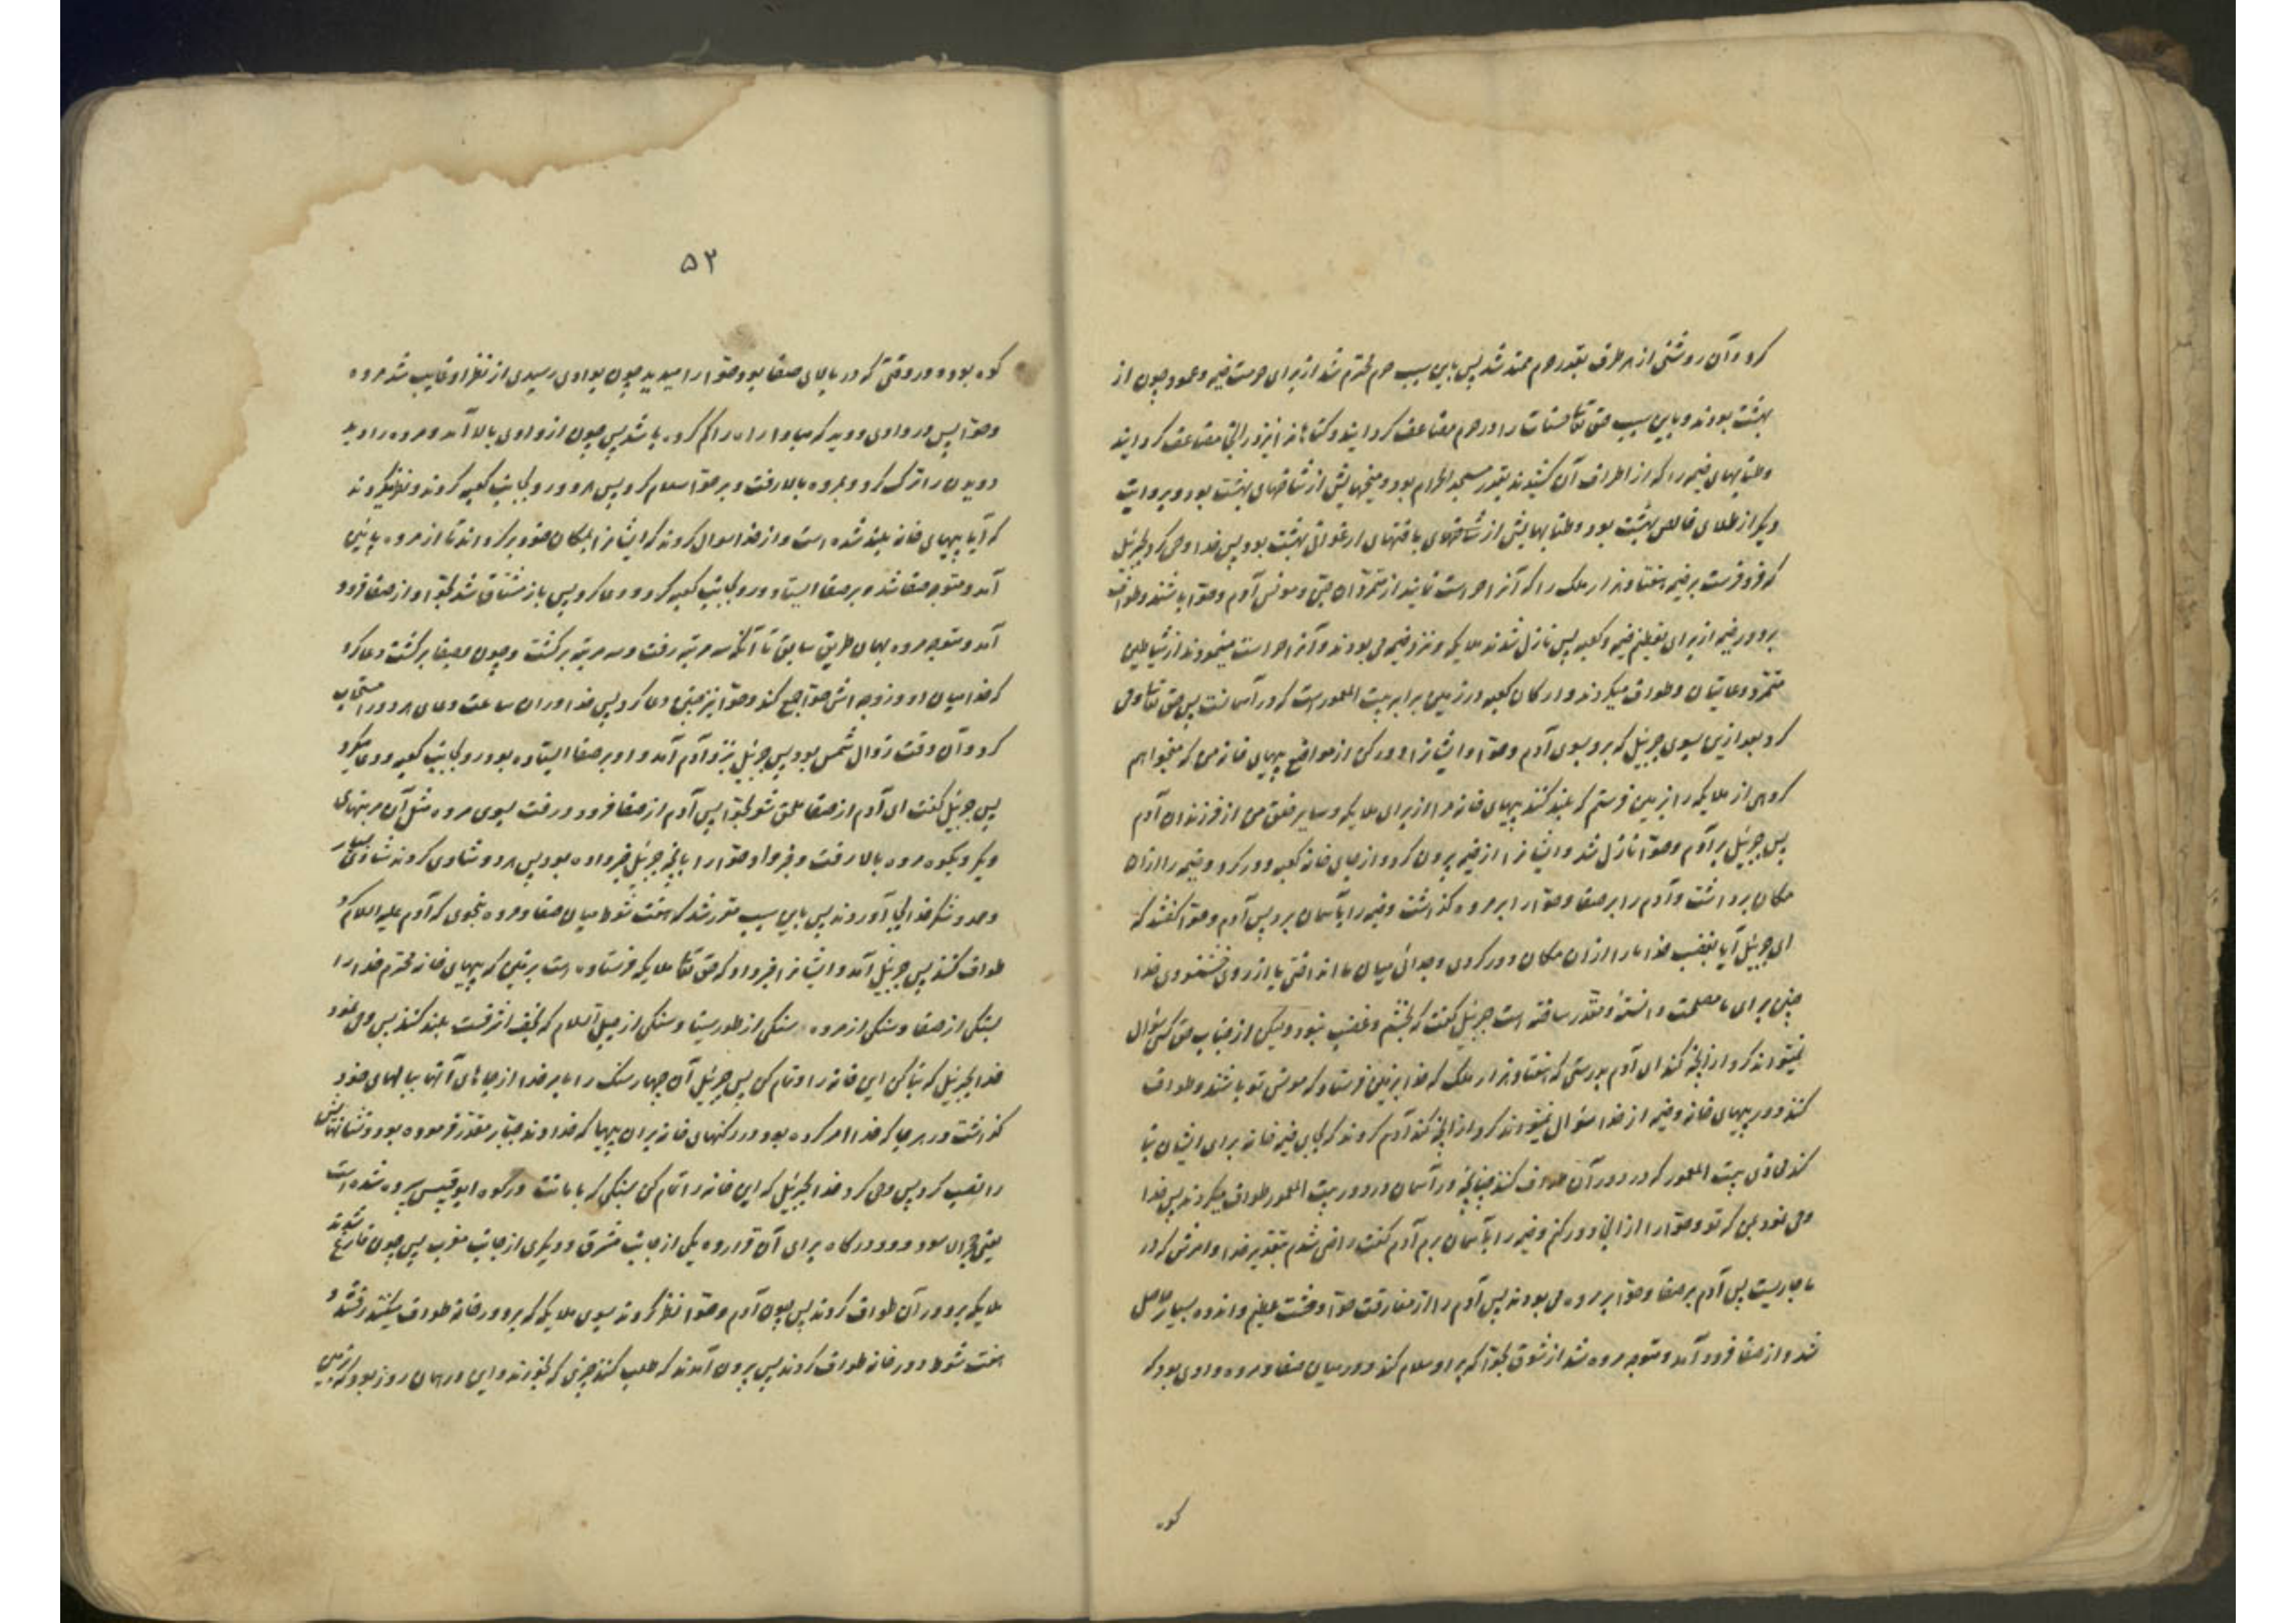 کرد و آن روشنی از هر طرف بقدر حرم ممتد شد پس باین سبب حرم محترم شد از برای حرمت خیمه و عمود چون از
بهشت بودند و باین سبب حق تعالی حسنات را در حرم مضاعف گردانید و گناهانرا نیز در آنجا مضاعف گردانید
و طنابهای خیمه را که از اطراف آن کشیدند بقدر مسجد الحرام بود و میخهایش از شاخهای بهشت بود و بروایت
دیگر از طلای خالص بهشت بود و طنابهایش از شاخهای بافتهای ارغوانی بهشت بود پس خدا وحی کرد بجبرئیل
که فرو فرست بر خیمه هفتاد هزار ملک را که آنرا حراست نمایند از متمردان جن و مونس آدم و حوا باشند و طواف
بر دور خیمه از برای تعظیم خیمه و کعبه پس نازل شدند ملایکه و نزد خیمه می بودند و آنرا حراست مینمودند از شیاطین
متمرد و عاتیان و طواف میکردند و ارکان کعبه در زمین برابر بیت المعمور است که در آسمانست پس حق تعالی وحی
کرد بعد ازین بسوی جبرئیل که برو بسوی آدم و حوا و ایشانرا دور کن از مواضع پیهای خانه من که میخواهم
گروهی از ملایکه را بزمین فرستم که بلند کنند پیهای خانه مرا از برای ملایکه و سایر خلق من از فرزندان آدم
پس جبرئیل بر آدم و حوا نازل شد و ایشانرا از خیمه بیرون کرد و از جای خانه کعبه دور کرد و خیمه را از آن
مکان برداشت و آدم را بر صفا و حوا را بر مروه گذاشت و خیمه را بآسمان برد پس آدم و حوا گفتند که
ای جبرئیل آیا بغضب خدا ما را از آن مکان دور کردی و جدائی میان ما انداختی یا از روی خشنودی خدا
چنین برای ما مصلحت دانسته و مقدر ساخته است جبرئیل گفت که بخشم و غضب نبود ولیکن از جناب حق کسی سؤال
نمیتواند کرد از آنچه کند ای آدم بدرستی که هفتاد هزار ملک که خدا بزمین فرستاد که مونس تو باشند و طواف
کنند دور پیهای خانه و خیمه از خدا سؤال نمیتواند کرد از آنچه کند آدم کردند که بجای خیمه خانه برای ایشان بنا
کند محاذی بیت المعمور که در دور آن طواف کنند چنانچه در آسمان در دور بیت المعمور طواف میکردند پس خدا
وحی نمود بمن که تو و حوا را از آنجا دور کنم و خیمه را بآسمان برم آدم گفت راضی شدم بتقدیر خدا و امرش که در
ما جاریست پس آدم بر صفا و حوا بر مروه می بودند پس آدم را از مفارقت حوا وحشت عظیم و اندوه بسیار حاصل
شد و از صفا فرود آمد و متوجه مروه شد از شوق بحوا که بر او سلام کند و در میان صفا و مروه وادی بود که
کوه
۵۲
کوه بوده و در وقتی که در بالای صفا بود حوا را میدید چون بوادی رسیدی از نظر او غایب شد مروه
و حوا پس در وادی دوید که مبادا راه را گم کرده باشد پس چون از وادی بالا آمد و مروه را دید
دویدن را ترک کرد و بمروه بالا رفت و بر حوا سلام کرد پس هر دو رو بجانب کعبه کردند و نظر میکردند
که آیا پیهای خانه بلند شده است و از خدا سوال کردند که ایشانرا بمکان خود برگرداند تا از مروه پائین
آمد و متوجه صفا شد و بر صفا ایستاد و رو بجانب کعبه کرد و دعا کرد پس باز مشتاق شد بحوا و از صفا فرود
آمد و متوجه مروه بهمان طریق سابق تا آنکه سه مرتبه رفت و سه مرتبه برگشت و چون بصفا برگشت دعا کرد
که خدا میان او و زوجه اش حوا جمع کند و حوا نیز چنین دعا کرد پس خدا در آن ساعت دعای هر دو را مستجاب
کرد و آن وقت زوال شمس بود پس جبرئیل نزد آدم آمد و او بر صفا ایستاده بود رو بجانب کعبه و دعا میکرد
پس جبرئیل گفت ای آدم از صفا ملحق شو بحوا پس آدم از صفا فرود و رفت بسوی مروه مثل آن مرتبهای
دیگر و بکوه مروه بالا رفت و خبر داد حوا را بآنچه جبرئیل خبر داده بود پس هر دو شادی کردند شادی بسیار
و حمد و شکر خدا بجا آوردند پس باین سبب مقرر شد که هفت شوط میان صفا و مروه بنحوی که آدم علیه السلام کرد
طواف کنند پس جبرئیل آمد و ایشانرا خبر داد که حق تعالی ملایکه فرستاده است بزمین که پیهای خانه محترم خدا را
بسنگی از صفا و سنگی از مروه و سنگی از طور سینا و سنگی از جبل السلام که نجف اشرفست بلند کنند پس وحی نمود
خدا بجبرئیل که بنا کن این خانه را و تمام کن پس جبرئیل آن چهار سنگ را بامر خدا از جاهای آنها ببالهای خود
گذاشت در هر جا که خدا امر کرده بود در رکنهای خانه بران پیها که خداوند جبار مقدر فرموده بود و نشانهایش
را نصب کرد پس وحی کرد خدا بجبرئیل که این خانه را تمام کن بسنگی که بامانت در کوه ابو قبیس سپرده شده است
یعنی حجر الاسود و دو درگاه برای آن قرار ده یکی از جانب مشرق و دیگری از جانب مغرب پس چون فارغ شدند
ملایکه بر دور آن طواف کردند پس چون آدم و حوا نظر کردند بسوی ملایکه که بر دور خانه طواف میکنند رفتند و
هفت شوط دور خانه طواف کردند پس بیرون آمدند که طلب کنند چیزی که بخورند و این در همان روز بود که از زمین